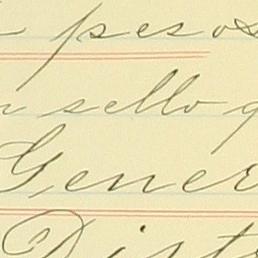 pesos
sello
Gener
Dist